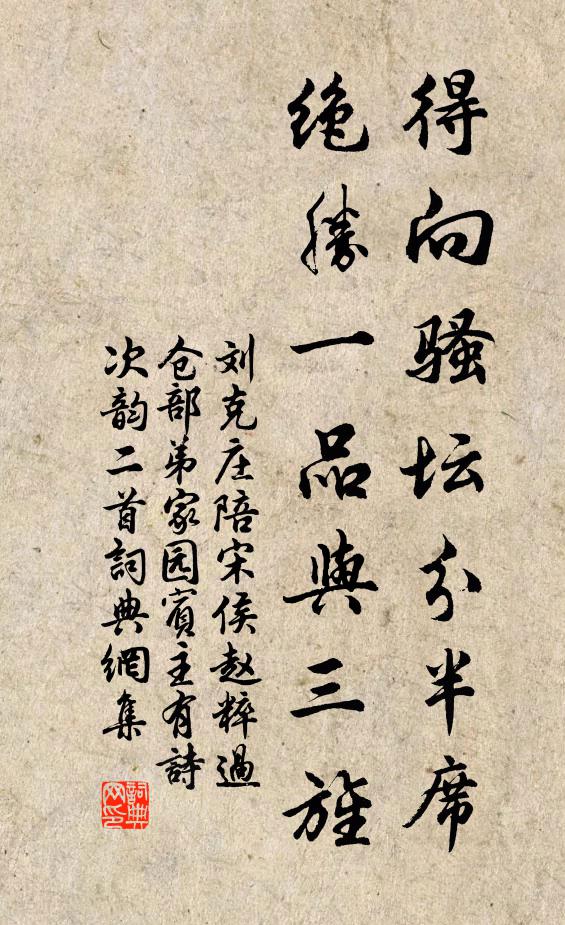 得向骚坛分半席
绝勝一品與三旌
刘克庄陪宋侯赵粹過
仓部弟家园賓主有詩
次韵二首詞典網集
詞典
网印